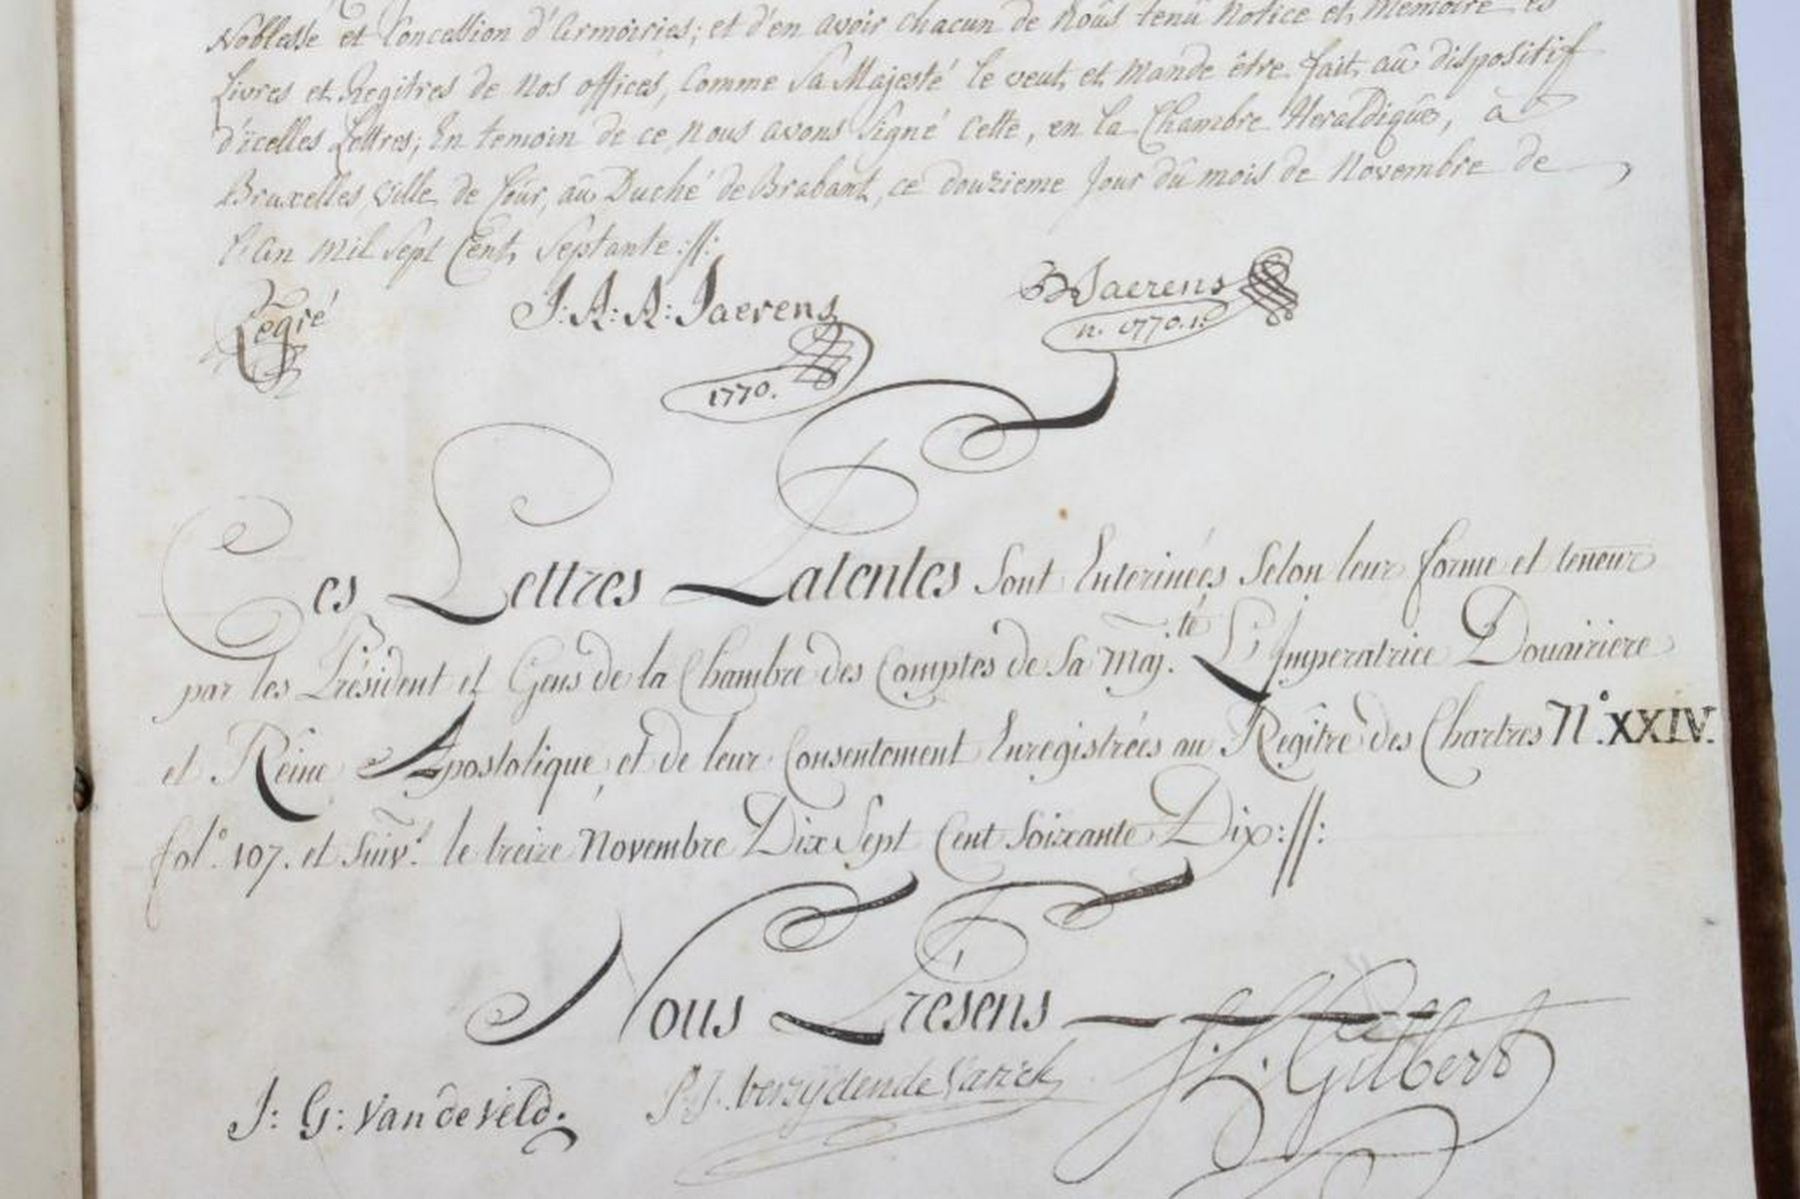 Noblesse et Concession d'Armoiries; et d'en avoir chacun de Noûs tenû Notice et Memoire es
Livres et Regîtres de Nos offices, Comme Sa Majesté le veut et Mande être fait aû dispositif
d'icelles Lettres; En temoin de ce Nous avons Signé Cette, en la Chambre Heraldiqûe, à
Bruxelles, ville de Coûr, aû Duché de Brabant, ce douzieme Jour dû mois de Novembre de
L'An Mil Sept Cent Septante ://:
Legré J: A: A: Jaerens Jaerens
1770. n. 1770.
Ces Lettres Patentes Sont Enterinées Selon leur forme et teneur
par les Président et Gens de la Chambre des Comptes de Sa Maj.té L'Imperatrice Douairiere
et Reine Apostolique, et de leur Consentement Enregistrées au Regître des Chartres N.º XXIV.
fol.º 107. et Suiv.t le treize Novembre Dix Sept Cent Soixante Dix ://:
Nous Présens
J: G: Van de Veld. P.J. de Varick J. L. Gilbert